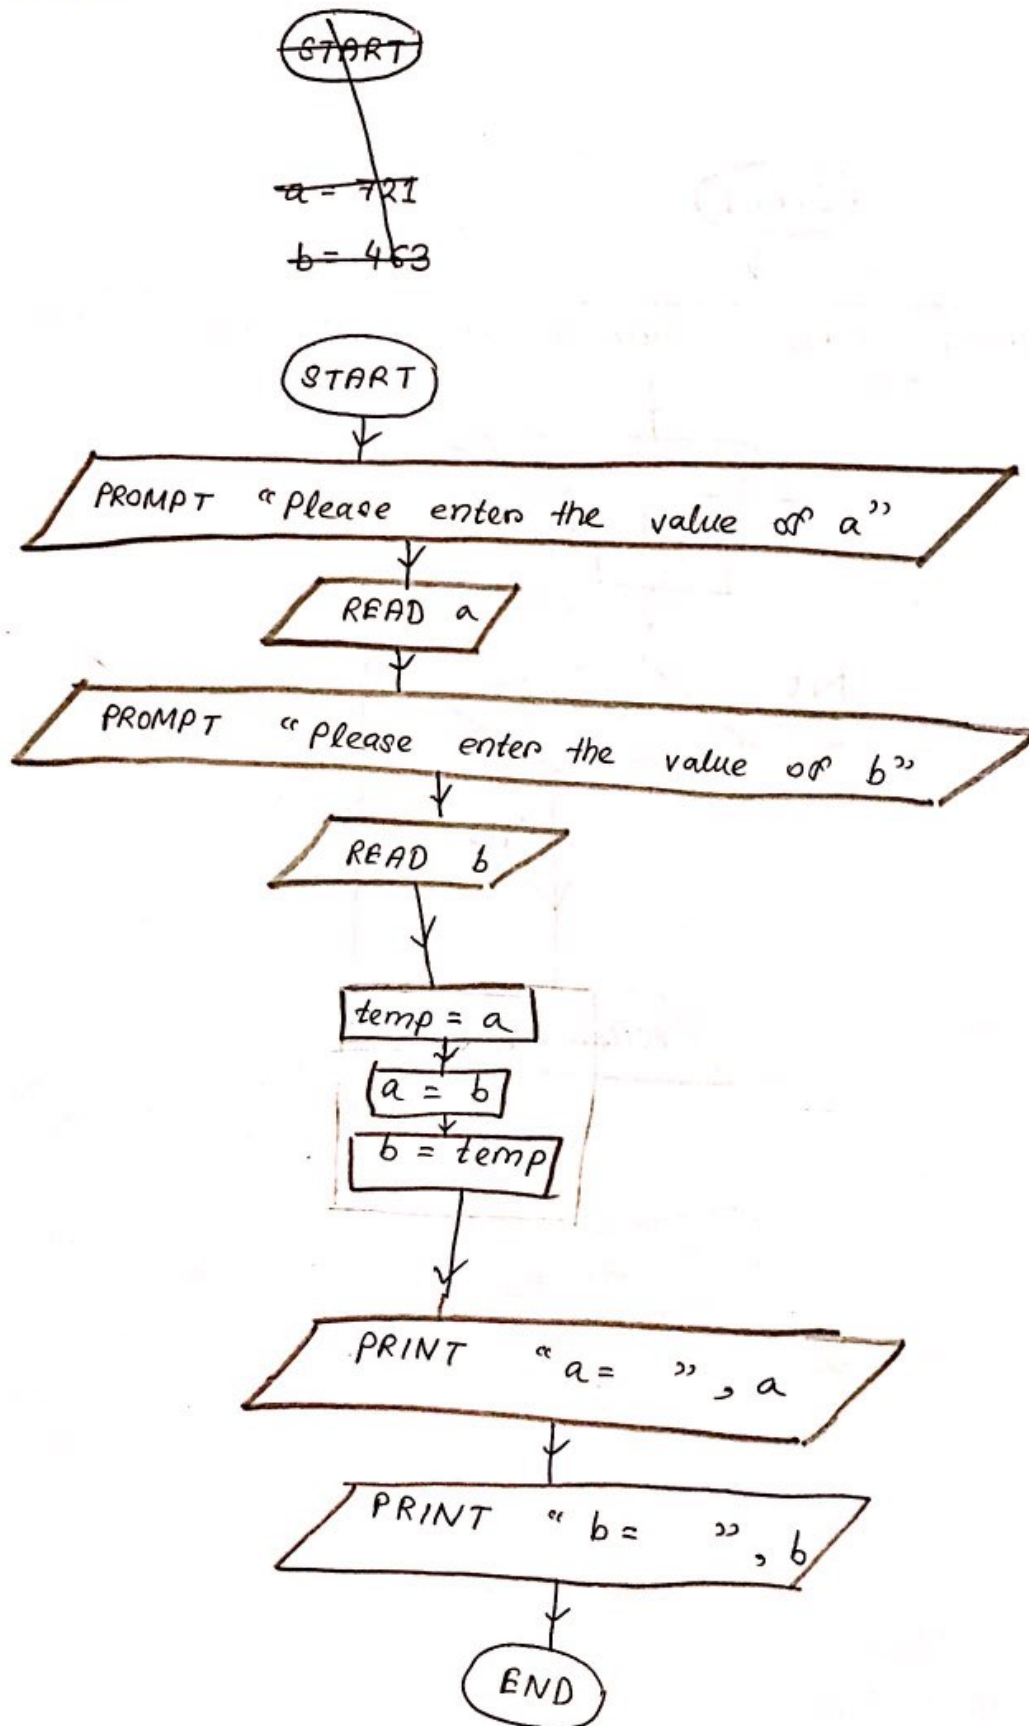 START
a = 721
b = 463
START
PROMPT "Please enter the value of a"
READ a
PROMPT "Please enter the value of b"
READ b
temp = a
a = b
b = temp
PRINT "a= ", a
PRINT "b= ", b
END